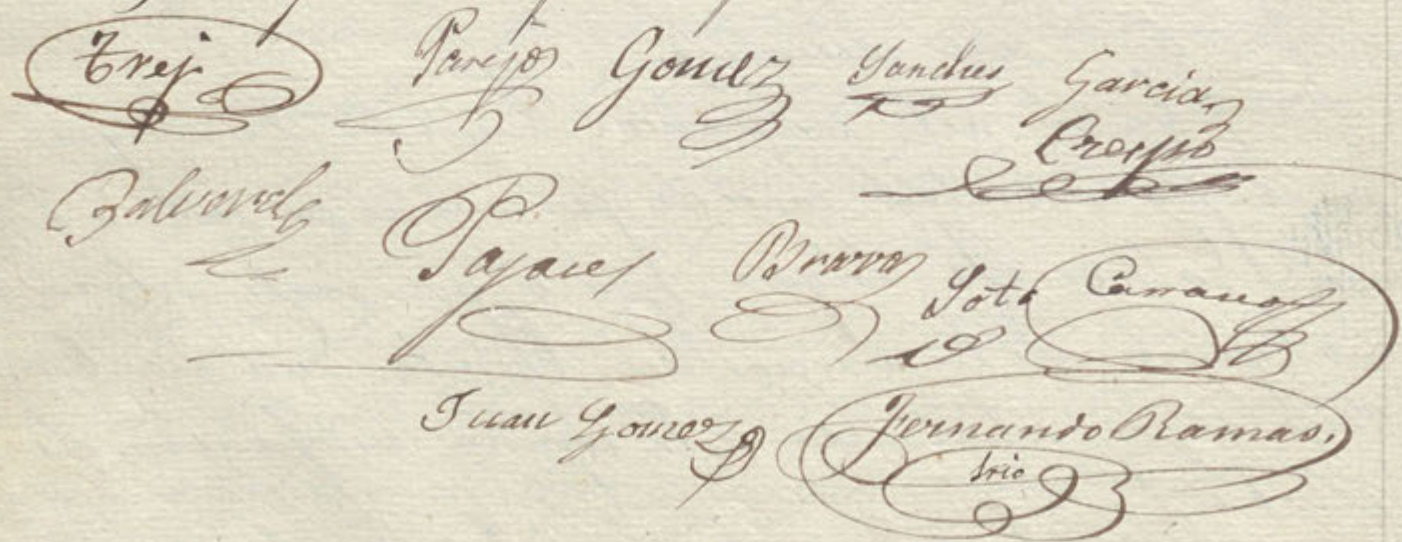 Trejo Parejo Gomez Sanches Garcia
Crespo
Balverde Pajares Bravo
Soto Carrasco
Juan Gomez Fernando Ramas.
Srio